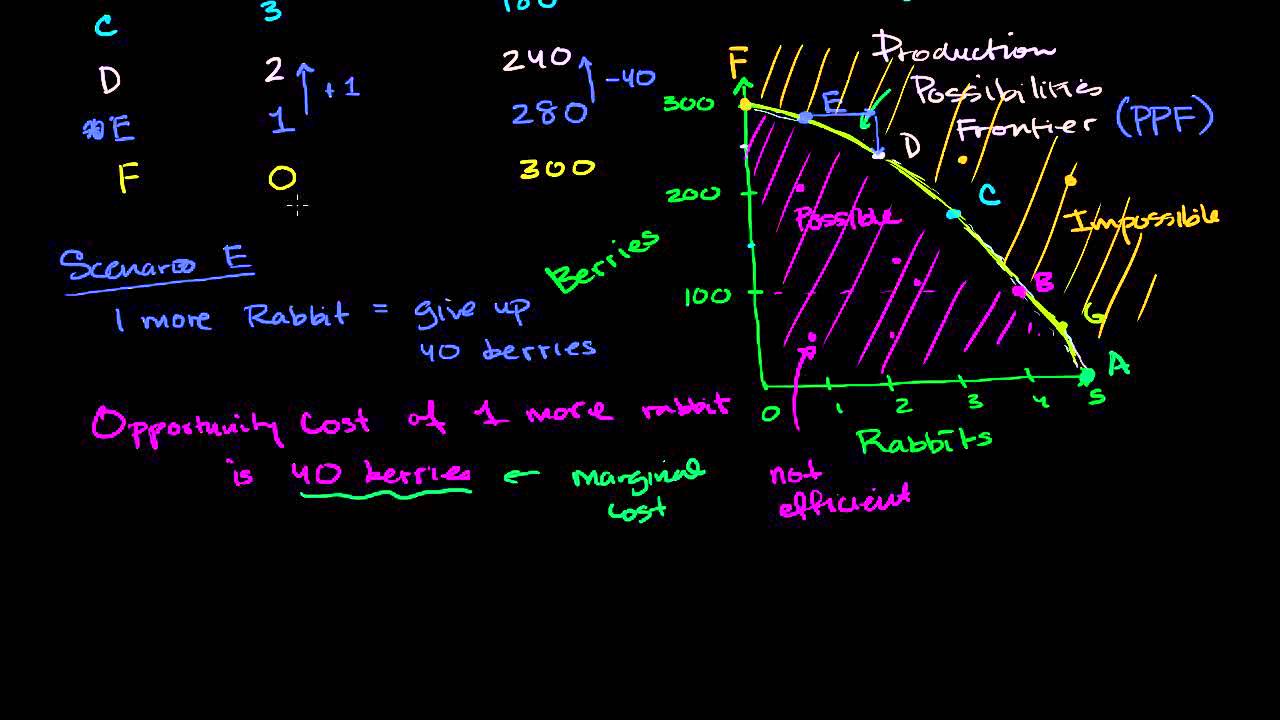 C 3 180
D 2 240
+1 -40
E 1 280
F 0 300
Scenario E
1 more Rabbit = give up
40 berries
Opportunity Cost of 1 more rabbit
is 40 berries ← marginal
cost
Production
Possibilities
Frontier (PPF)
F
300
E
D
200
C
Possible
Impossible
Berries
100
B
G
A
0 1 2 3 4 5
Rabbits
not
efficient